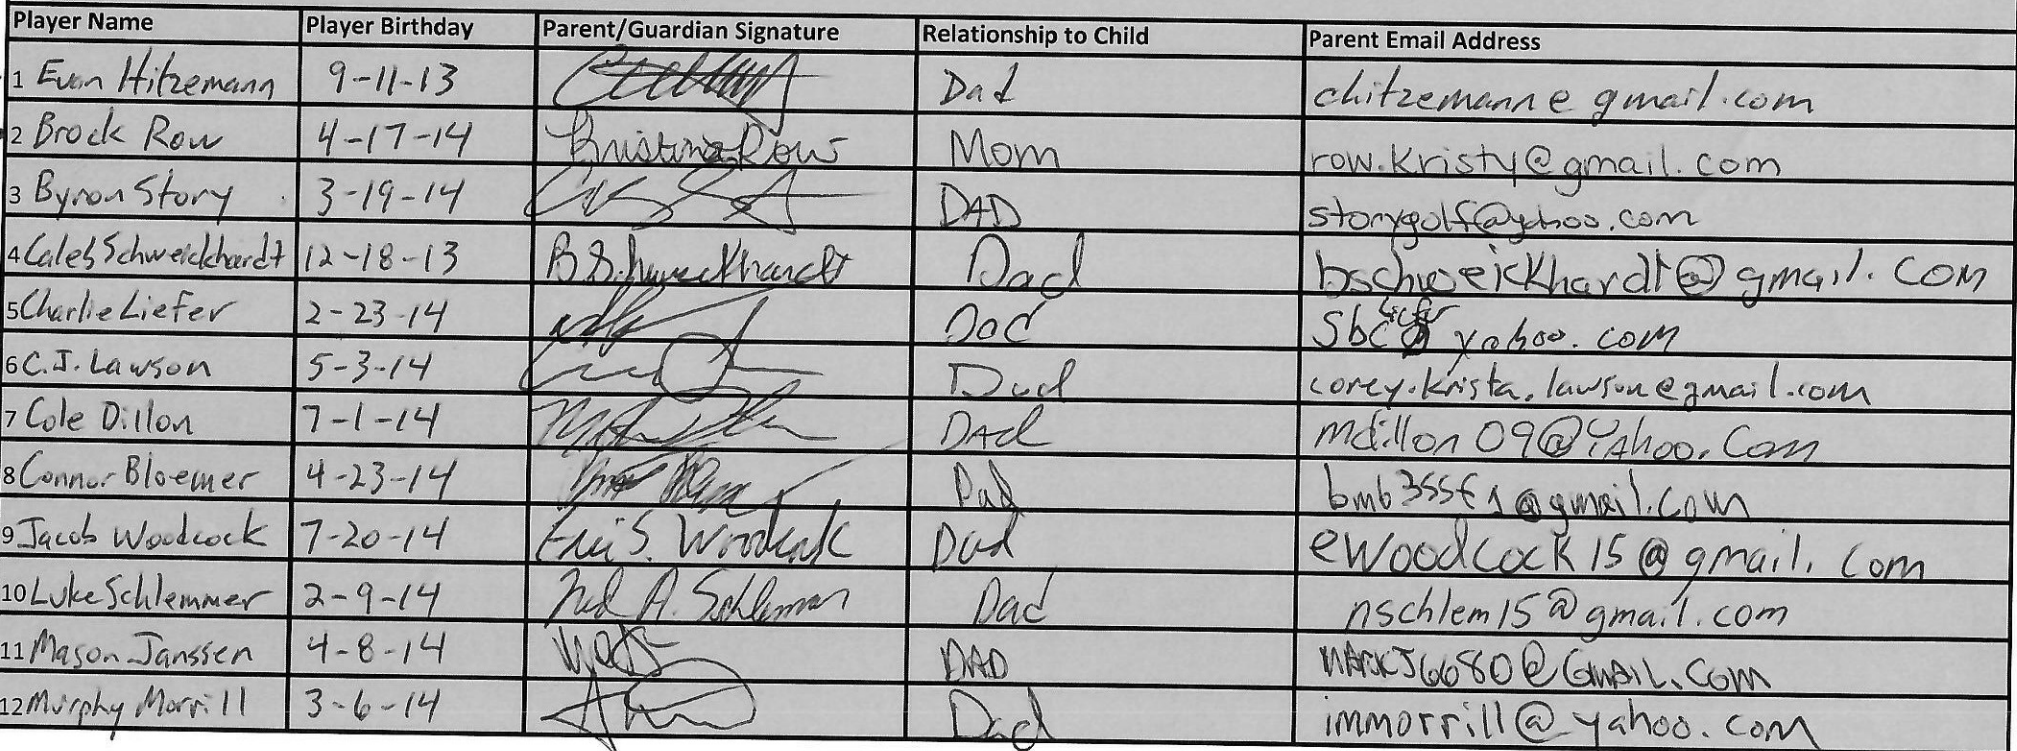 Player Name Player Birthday Parent/Guardian Signature Relationship to Child Parent Email Address
1 Evan Hitzemann 9-11-13 Dad chitzemann@gmail.com
2 Brock Row 4-17-14 Kristina Row Mom row.kristy@gmail.com
3 Byron Story 3-19-14 DAD storygolf@yahoo.com
4 Caleb Schweickhardt 12-18-13 B Schweickhardt Dad bschweickhardt@gmail.com
5 Charlie Liefer 2-23-14 Dad yahoo.com
6 C.J. Lawson 5-3-14 Dad corey.krista.lawson@gmail.com
7 Cole Dillon 7-1-14 DAd mdillon09@YAhoo.Com
8 Connor Bloemer 4-23-14 Dad @gmail.com
9 Jacob Woodcock 7-20-14 Eric S. Woodcock Dad ewoodcock15@gmail.com
10 Luke Schlemmer 2-9-14 A. Schlemmer Dad nschlem15@gmail.com
11 Mason Janssen 4-8-14 DAD MARKJ6680@GMAIL.COM
12 Murphy Morrill 3-6-14 Dad immorrill@yahoo.com